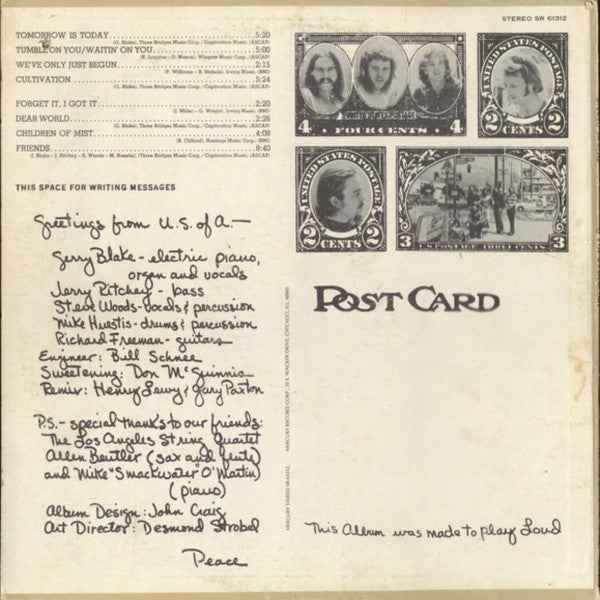 STEREO SR 61312
TOMORROW IS TODAY 5:20
(G. Blake), Three Bridges Music Corp./Captivation Music, (ASCAP)
TUMBLE ON YOU/WAITIN' ON YOU 5:00
(K. Loggins - D. Mason), Wingate Music Corp. (ASCAP)
WE'VE ONLY JUST BEGUN 2:15
(P. Williams - R. Nichols), Irving Music, (BMI)
CULTIVATION 5:24
(G. Blake), Three Bridges Music Corp./Captivation Music, (ASCAP)
FORGET IT, I GOT IT 2:20
(G. Wright), Irving Music, (BMI)
DEAR WORLD 2:26
(G. Blake), Three Bridges Music Corp./Captivation Music, (ASCAP)
CHILDREN OF MIST 4:08
(R. Clifford), Music Corp., (BMI)
FRIENDS 8:40
Three Bridges Music Corp./Captivation Music, (ASCAP)
THIS SPACE FOR WRITING MESSAGES
Greetings from U.S. of A.—
Gerry Blake - electric piano,
organ and vocals
Jerry Ritchey - bass
Steve Woods - vocals & percussion
Mike Huestis - drums & percussion
Richard Freeman - guitars
Engineer: Bill Schnee
Sweetening: Don McGinnis
Remix: Henry Lewy & Gary Paxton
P.S. - special thanks to our friends:
The Los Angeles String Quartet
Allen Beutler (sax and flute)
and Mike "Smackwater" O'Martin)
(piano)
Album Design: John Craig
Art Director: Desmond Strobel
Peace
4 · FOUR CENTS · 4
UNITED STATES POSTAGE
2 CENTS 2
UNITED STATES POSTAGE
2 CENTS 2
3 U.S. POSTAGE THREE CENTS 3
POST CARD
MERCURY STEREO SR-61312, MERCURY RECORD CORP., 35 E. WACKER DRIVE, CHICAGO, ILL. 60601
This Album was made to play Loud